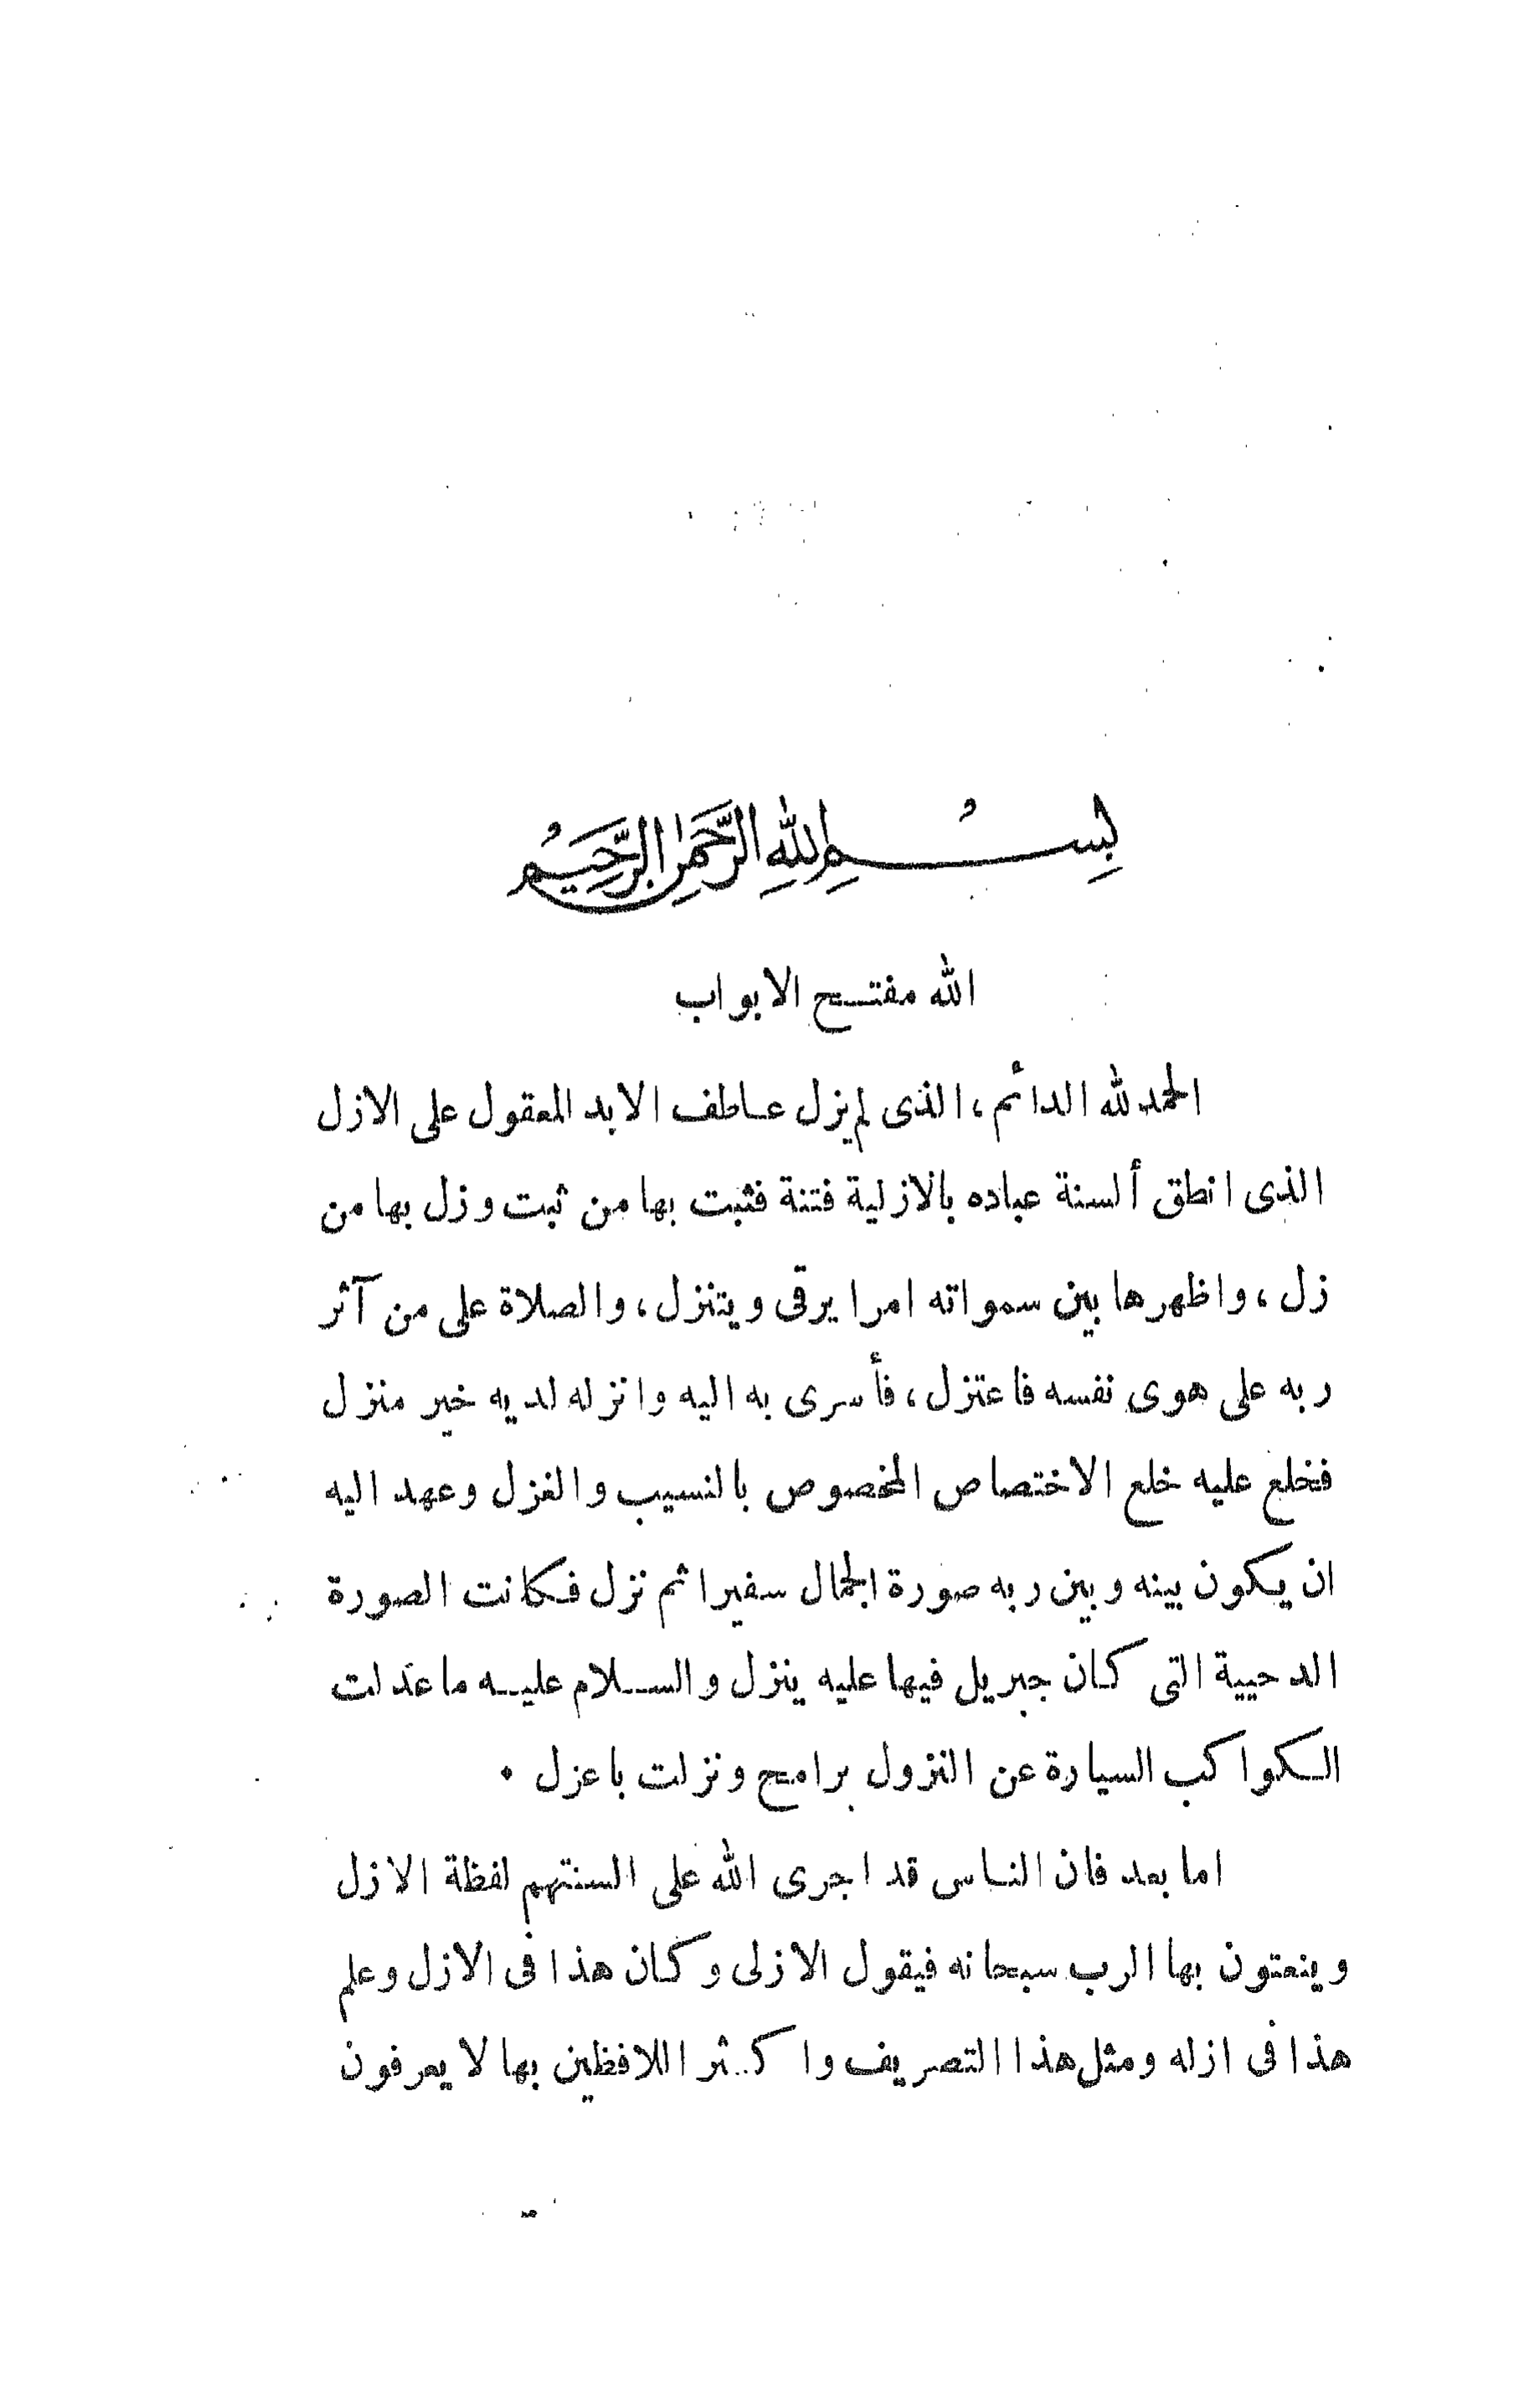 بِسْمِ اللهِ الرَّحْمٰنِ الرَّحِيمِ
الله مفتح الابواب
الحمد لله الدائم، الذى لم يزل عاطف الابد المعقول على الازل
الذى انطق ألسنة عباده بالازلية فتنة فثبت بها من ثبت وزل بها من
زل، واظهرها بين سمواته امرا يرقى ويتنزل، والصلاة على من آثر
ربه على هوى نفسه فاعتزل، فأسرى به اليه وانزله لديه خير منزل
فخلع عليه خلع الاختصاص المخصوص بالنسيب والغزل وعهد اليه
ان يكون بينه وبين ربه صورة الجمال سفيرا ثم نزل فكانت الصورة
الدحيية التى كان جبريل فيها عليه ينزل والسلام عليه ما عدلت
الكواكب السيارة عن النزول برامح ونزلت باعزل .
اما بعد فان الناس قد اجرى الله على السنتهم لفظة الازل
وينعتون بها الرب سبحانه فيقول الازلى وكان هذا فى الازل وعلم
هذا فى ازله ومثل هذا التصريف واكثر اللافظين بها لا يعرفون